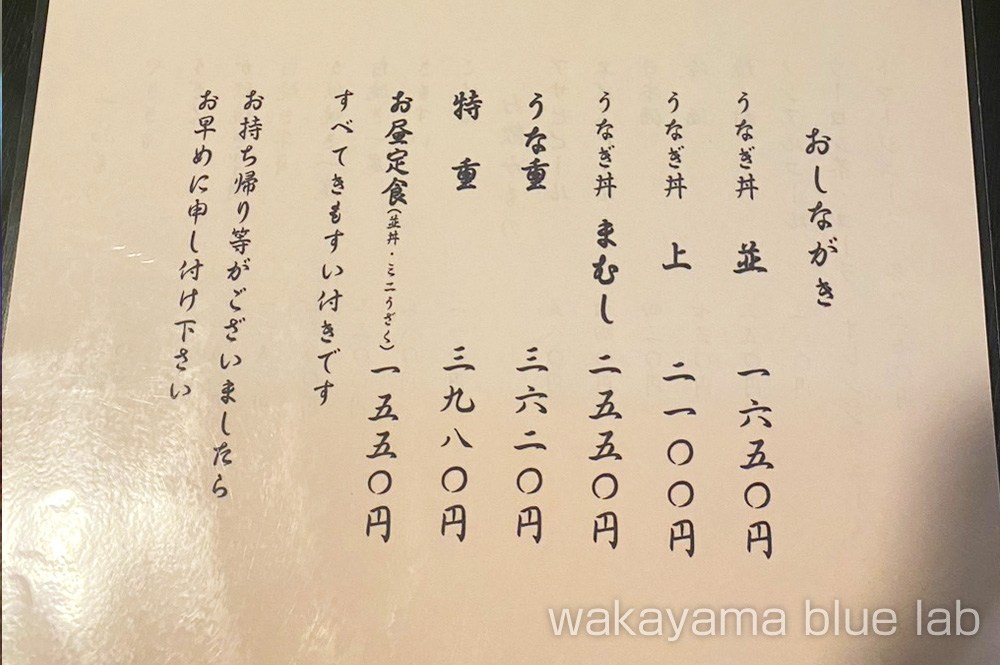 おしながき
うなぎ丼 並 一六五〇円
うなぎ丼 上 二一〇〇円
うなぎ丼 まむし 二五五〇円
うな重 三六二〇円
特重 三九八〇円
お昼定食(並丼・ミニうざく) 一五五〇円
すべてきもすい付きです
お持ち帰り等がございましたら
お早めに申し付け下さい
wakayama blue lab